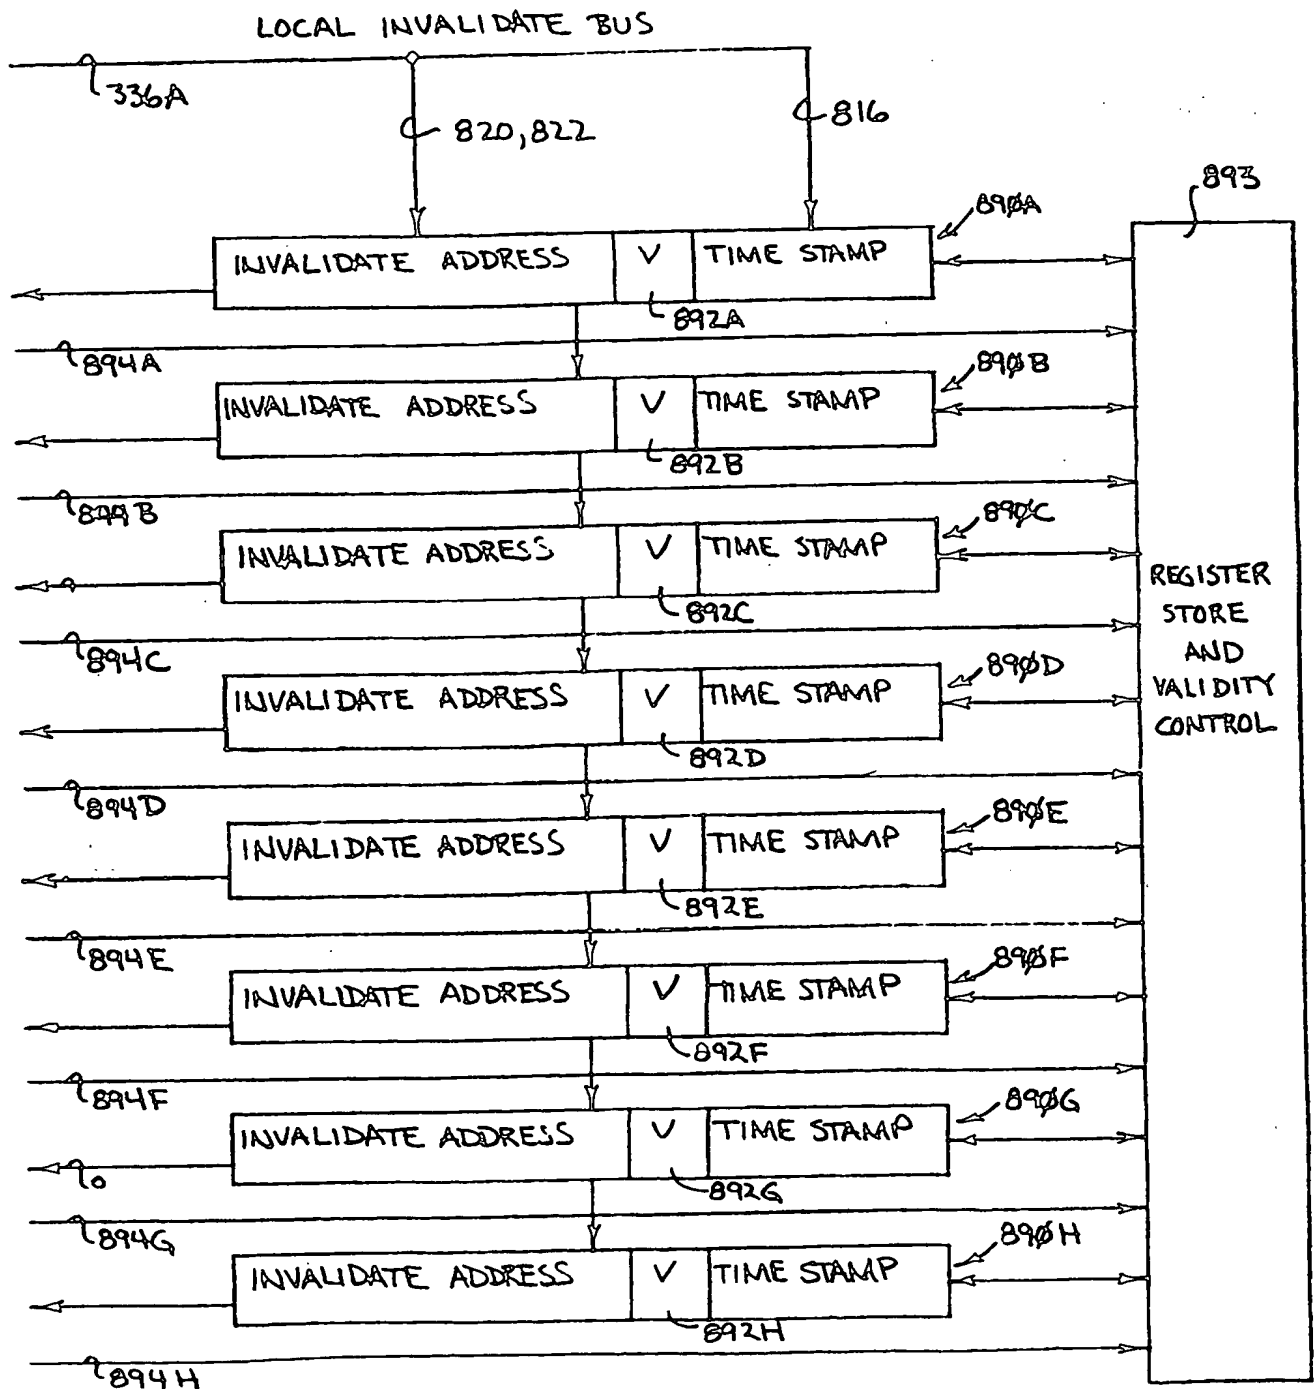 LOCAL INVALIDATE BUS
336A
820,822
816
893
890A
INVALIDATE ADDRESS V TIME STAMP
892A
894A
890B
INVALIDATE ADDRESS V TIME STAMP
892B
894B
890C
INVALIDATE ADDRESS V TIME STAMP
892C
894C
REGISTER
STORE
AND
VALIDITY
CONTROL
890D
INVALIDATE ADDRESS V TIME STAMP
892D
894D
890E
INVALIDATE ADDRESS V TIME STAMP
892E
894E
890F
INVALIDATE ADDRESS V TIME STAMP
892F
894F
890G
INVALIDATE ADDRESS V TIME STAMP
892G
894G
890H
INVALIDATE ADDRESS V TIME STAMP
892H
894H